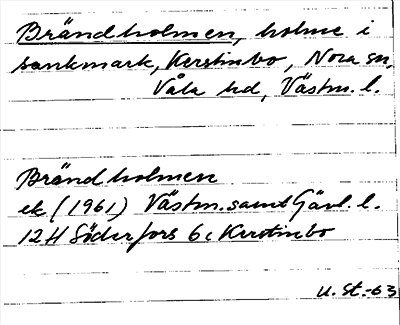 Brändholmen, holme i
sankmark, Kerstinbo, Nora sn,
Våla hd, Västm. l.
Brändholmen
ek (1961) Västm. samt Gävl. l.
12 H Söderfors 6c Kerstinbo
U. St. -63